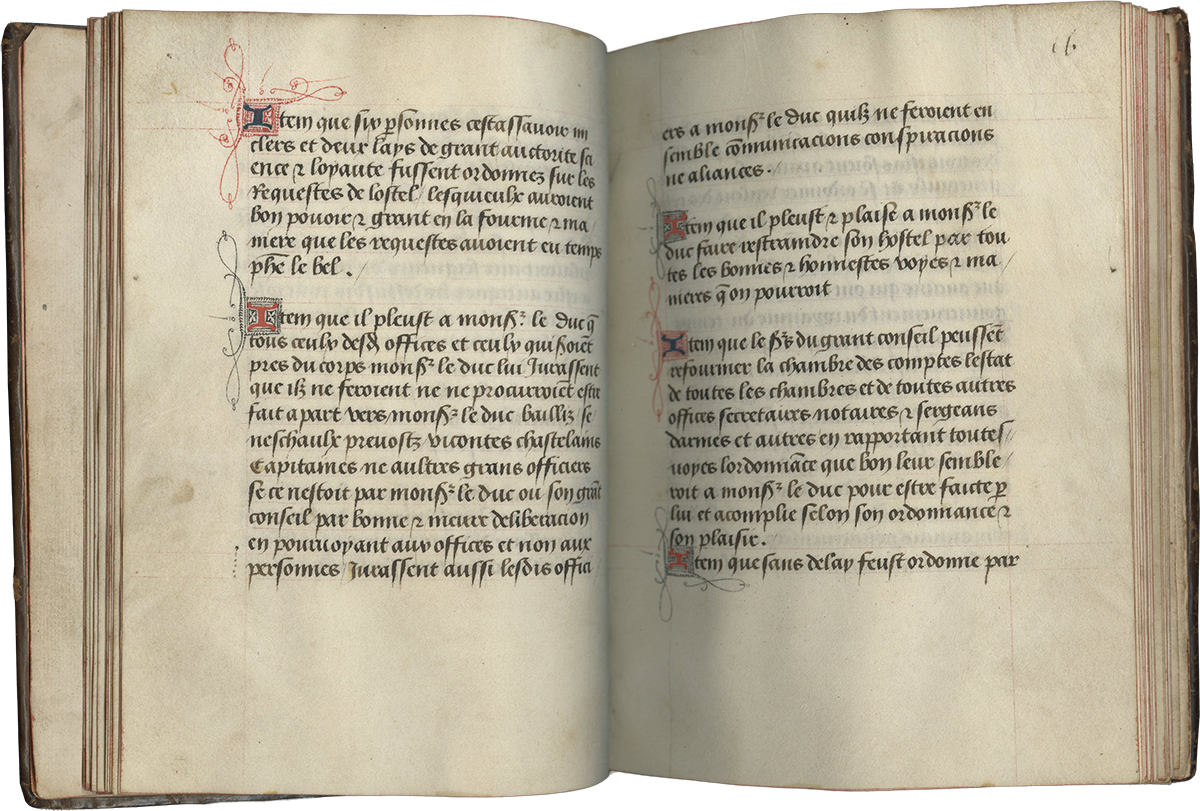 Item que six psonnes cestassavoir iiii
clers et deux lays de grant auctorite sci
ence ⁊ loyaute fussent ordonnez sur les
Requestes de lostel / lesquieulx auroient
bon povoir ⁊ grant en la fourme ⁊ ma /
niere que les requestes avoient eu temps
phē le bel . /
Item que il pleust a monsr. le duc q̄
tous ceulx desd offices et ceulx qui soiēt
pres du corps monsr. le duc lui Jurassent
que ilz ne feroient ne ne procurroiēt estre
fait a part vers monsr. le duc bailliz / se /
neschaulx prevostz vicontes chastelains
Capitaines ne aultres grans officiers
se ce nestoit par monsr. le duc ou son grāt
conseil par bonne ⁊ meure deliberacion
en pourvoyant aux offices et non aux
personnes Jurassent aussi lesdis offici
16
ers a monsr. le duc quilz ne feroient en
semble cōmunicacions conspiracions
ne aliances . /
Item que il pleust ⁊ plaise a monsr. le
duc faire restraindre son hostel par tou
tes les bonnes ⁊ honnestes voyes ⁊ ma /
nieres q̄ on pourroit
Item que le srs du grant conseil peussēt
refourmer la chambre des comptes lestat
de toutes les chambres et de toutes autres
offices secretaires notaires ⁊ sergeans
darmes et autres en rapportant toutes /
voyes lordonnāce que bon leur semble /
roit a monsr. le duc pour estre faicte p
lui et acomplie selon son ordonnance ⁊
son plaisir .
Item que sans delay feust ordonne par